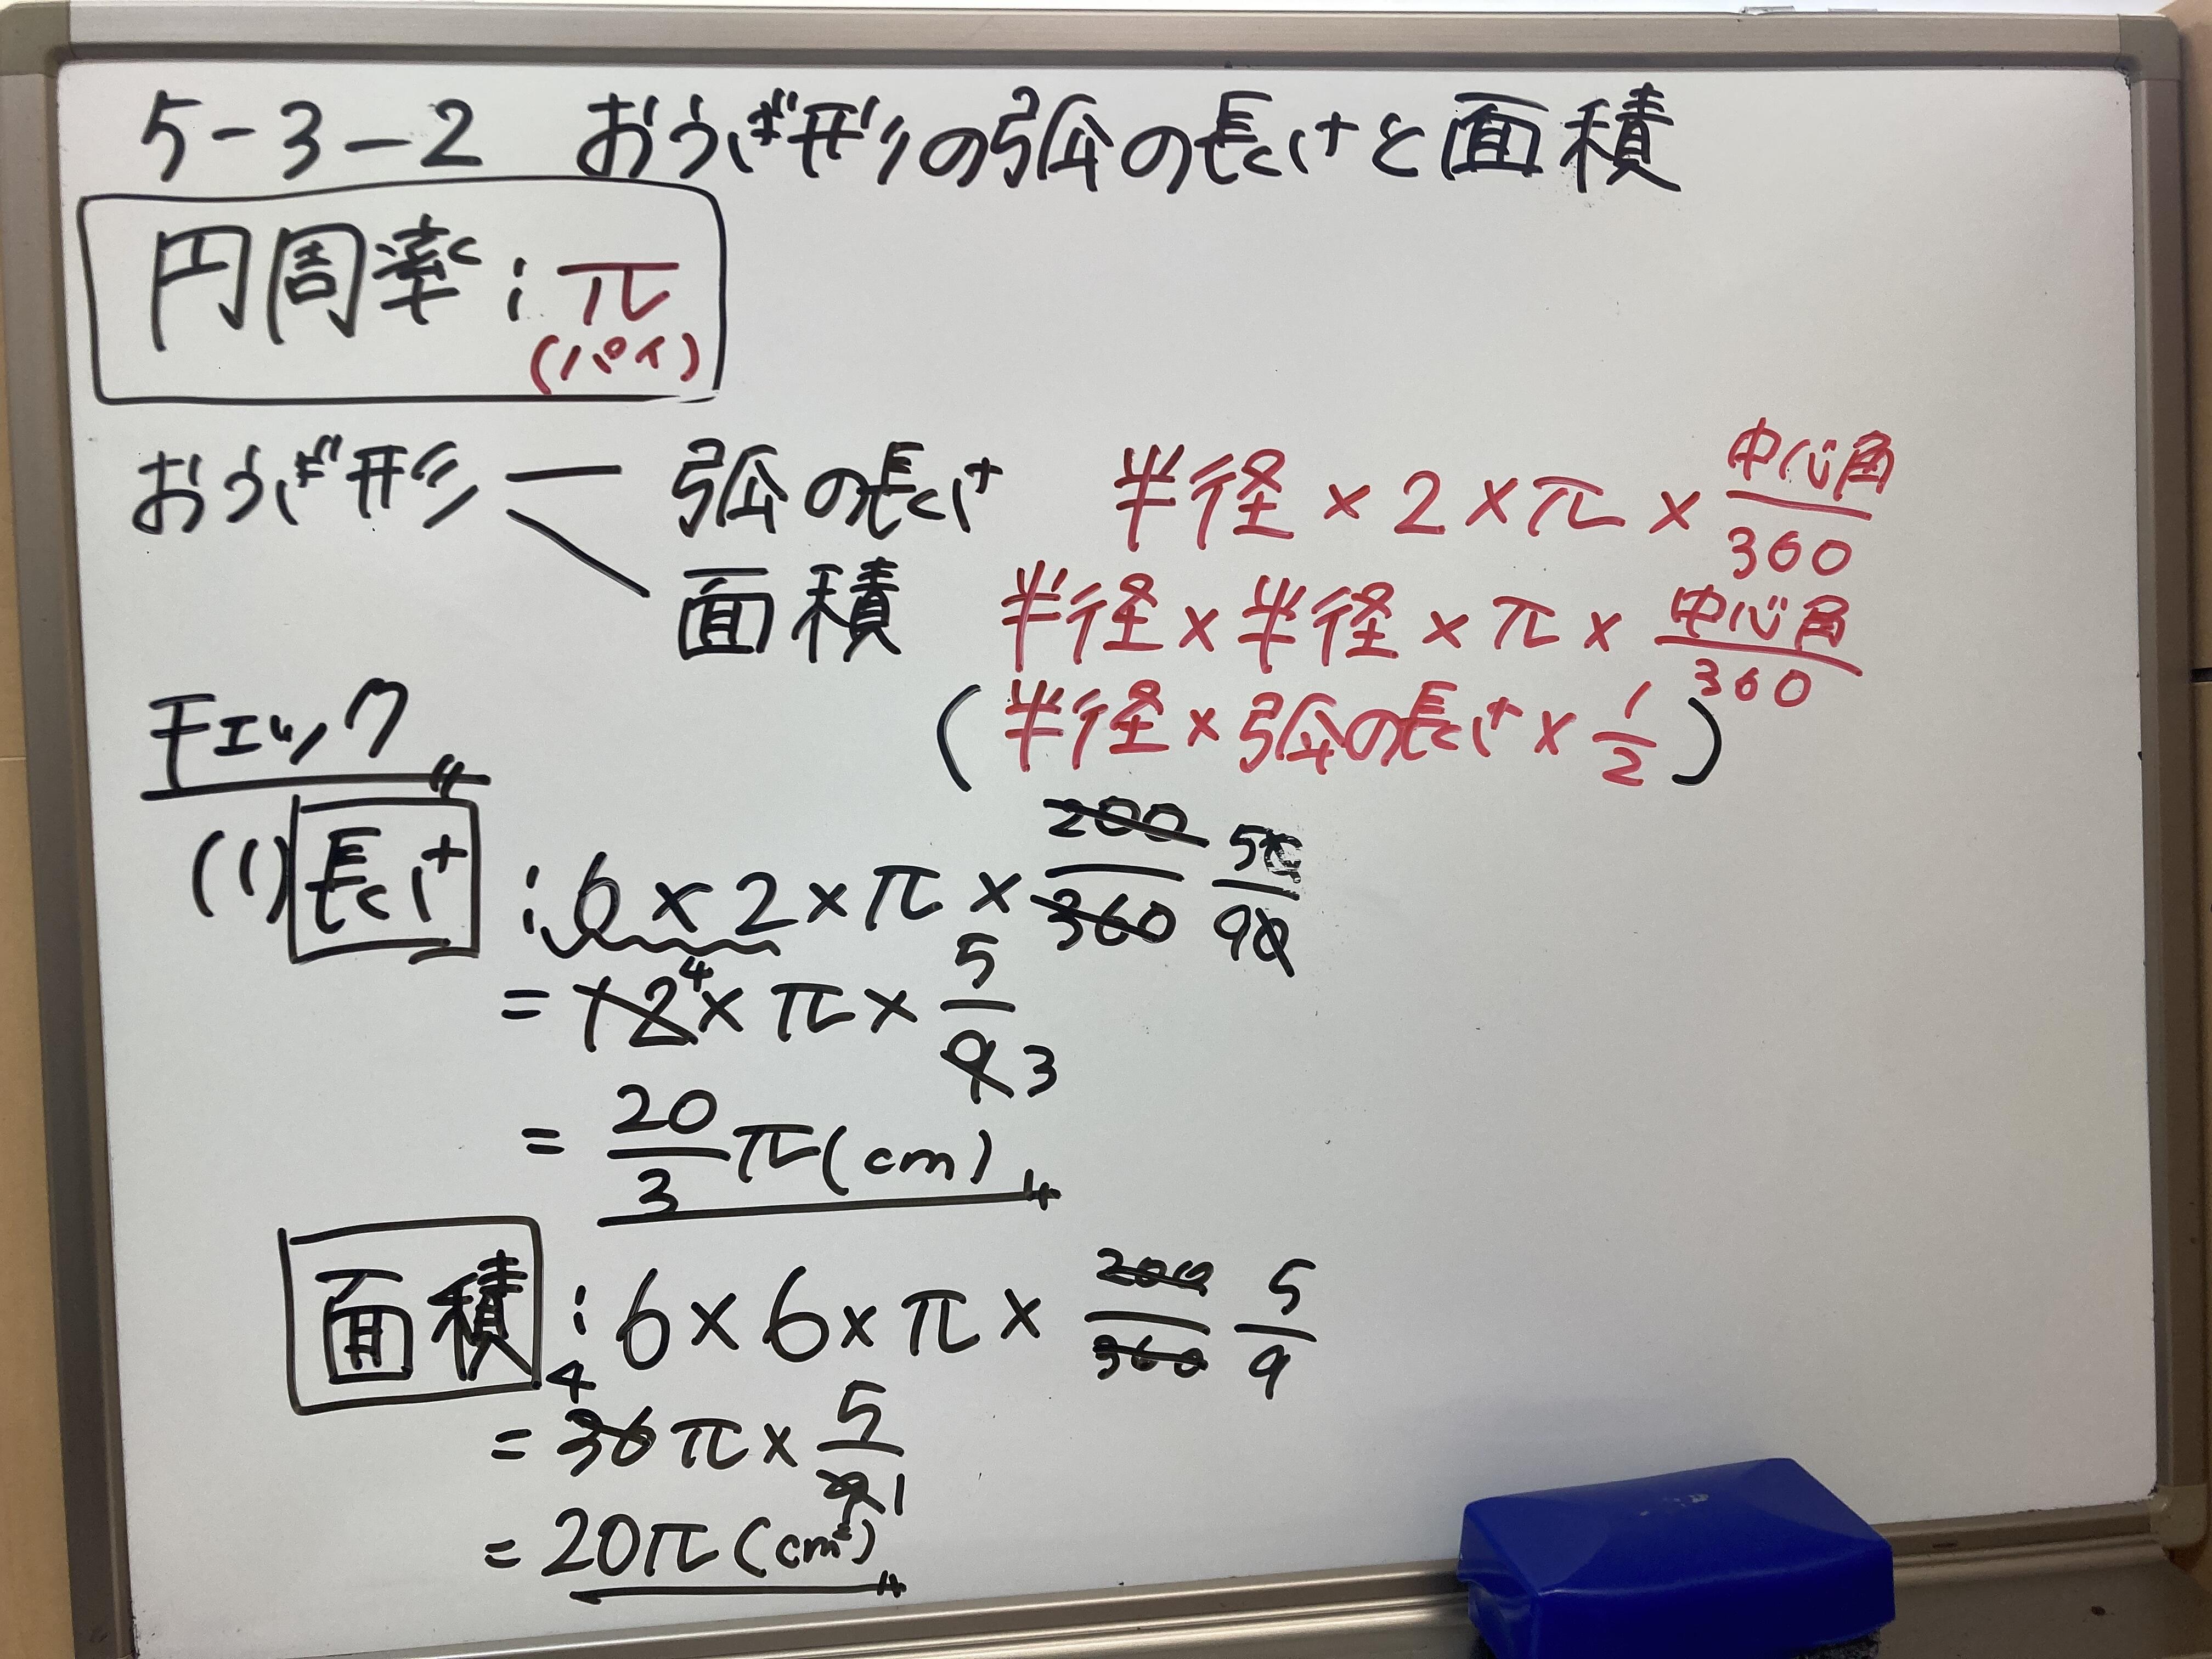 5-3-2 おうぎ形の弧の長さと面積
円周率:π
(パイ)
おうぎ形 弧の長さ 半径×2×π×中心角/360
面積 半径×半径×π×中心角/360
(半径×弧の長さ×1/2)
チェック
(1)長さ:6×2×π×200/360 5/90
=12 4×π×5/9 3
=20/3π(cm)
面積:6×6×π×200/360 5/9
4
=36π×5/9 1
=20π(cm²)